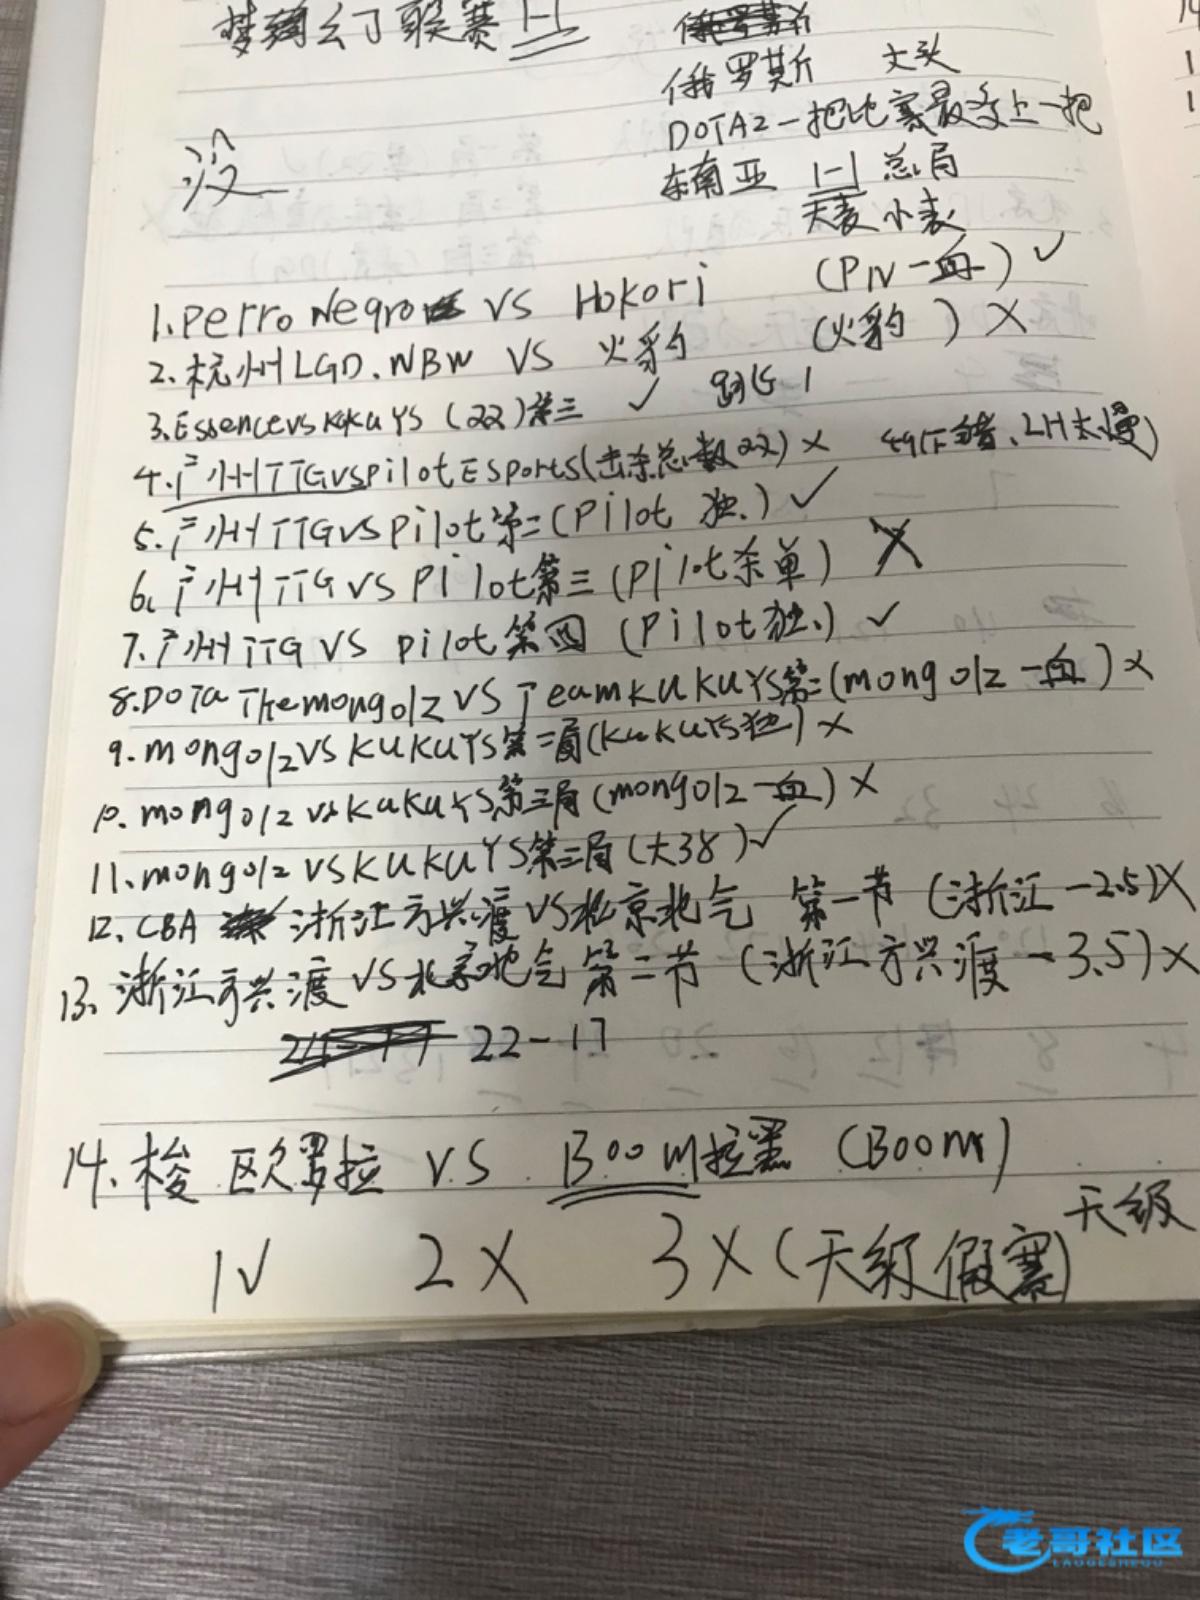 梦幻联赛 1-1
俄罗斯
DOTA2一把比赛最多上一把
没
东南亚 1-1 总局
天麦 小麦
1. Perro Negro VS Hokori (PN一血) ✓
2. 杭州LGD.NBW VS 火豹 (火豹) X
3. Essence vs KuKuYS (22) 第三 ✓
4. 广州TTG vs Pilot Esports (击杀总数22) X LH太慢
5. 广州TTG VS Pilot第二 (Pilot 独) ✓
6. 广州TTG VS Pilot第三 (Pilot杀单) X
7. 广州TTG VS pilot第四 (Pilot独) ✓
8. DOTA Themongolz VS TeamKUKUYS第二 (mongolz一血) X
9. mongolz VS KUKUYS第二局 (KuKuYS独) X
10. mongolz vs KuKuYS第三局 (mongolz一血) X
11. mongolz VS KUKUYS第三局 (大38) ✓
12. CBA 浙江方兴渡 VS 北京北气 第一节 (浙江 -2.5) X
13. 浙江方兴渡 VS 北京北气 第二节 (浙江方兴渡 -3.5) X
22-17
14. 梭 欧罗拉 VS Boom拉黑 (Boom)
天级
1✓ 2X 3X (天级假赛)
老哥社区
LAOGESHEQU